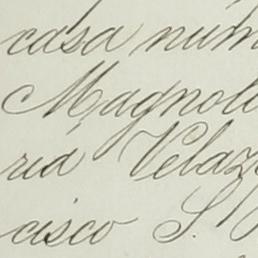 casa núm
Magnoli
ria Velaz
cisco S.